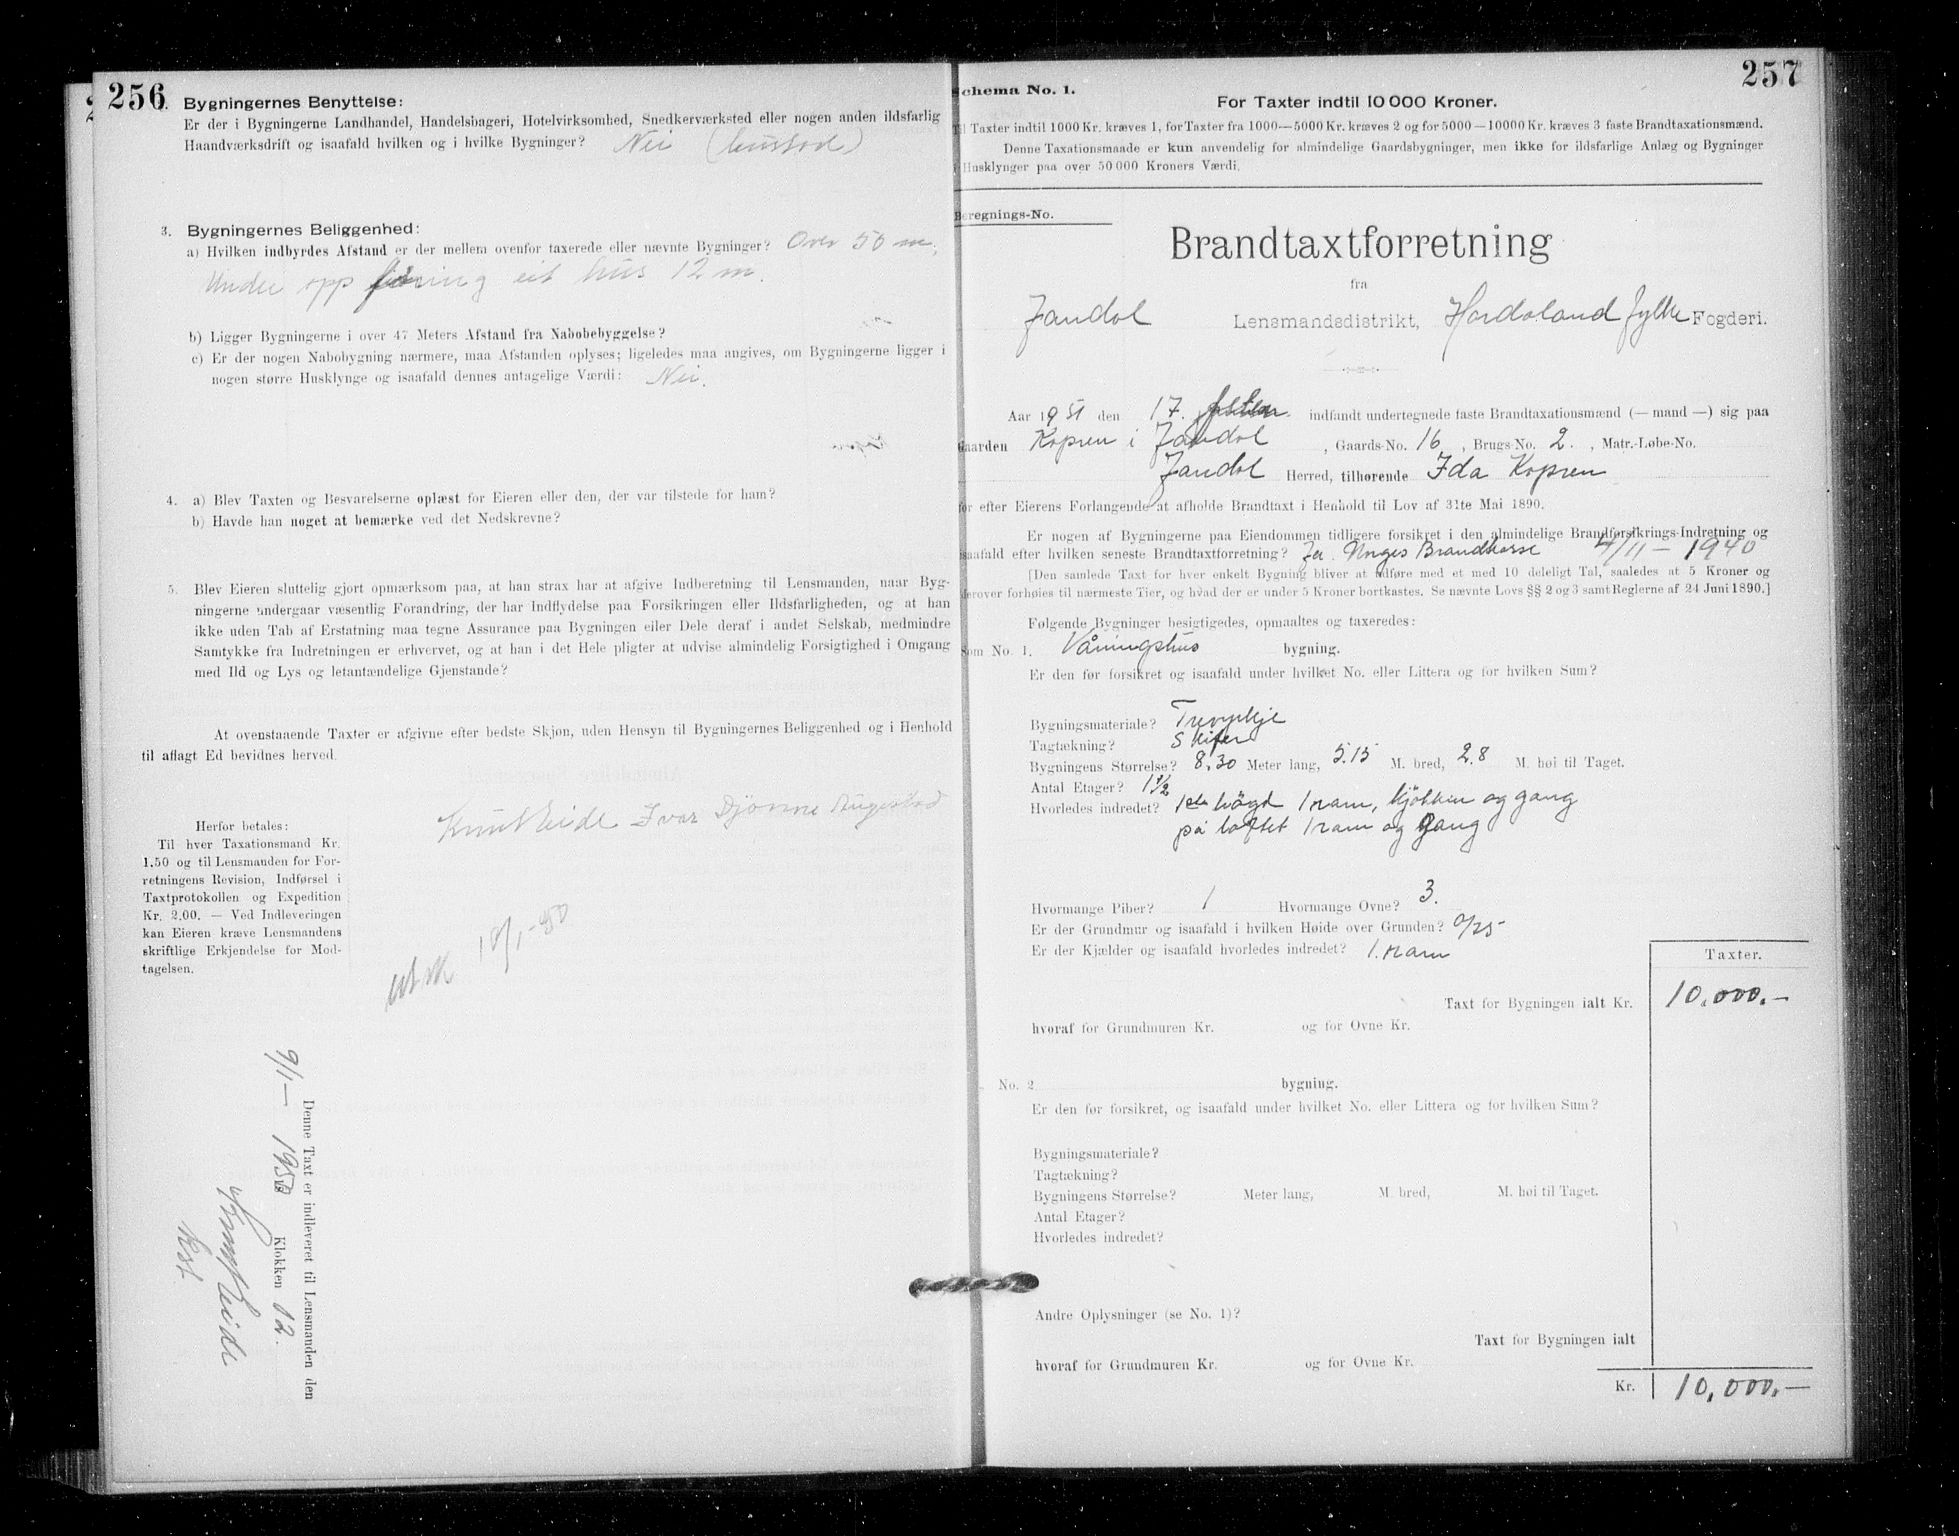 256.
Bygningernes Benyttelse:
Er der i Bygningerne Landhandel, Handelsbageri, Hotelvirksomhed, Snedkerværksted eller nogen anden ildsfarlig
Haandværksdrift og isaafald hvilken og i hvilke Bygninger? Nei
3. Bygningernes Beliggenhed:
a) Hvilken indbyrdes Afstand er der mellem ovenfor taxerede eller nævnte Bygninger? Over 50 m.
Under oppföring eit hus 12 m.
b) Ligger Bygningerne i over 47 Meters Afstand fra Nabobebyggelse?
c) Er der nogen Nabobygning nærmere, maa Afstanden oplyses; ligeledes maa angives, om Bygningerne ligger i
nogen større Husklynge og isaafald dennes antagelige Værdi: Nei.
4. a) Blev Taxten og Besvarelserne oplæst for Eieren eller den, der var tilstede for ham?
b) Havde han noget at bemærke ved det Nedskrevne?
5. Blev Eieren sluttelig gjort opmærksom paa, at han strax har at afgive Indberetning til Lensmanden, naar Byg-
ningerne undergaar væsentlig Forandring, der har Indflydelse paa Forsikringen eller Ildsfarligheden, og at han
ikke uden Tab af Erstatning maa tegne Assurance paa Bygningen eller Dele deraf i andet Selskab, medmindre
Samtykke fra Indretningen er erhvervet, og at han i det Hele pligter at udvise almindelig Forsigtighed i Omgang
med Ild og Lys og letantændelige Gjenstande?
At ovenstaaende Taxter er afgivne efter bedste Skjøn, uden Hensyn til Bygningernes Beliggenhed og i Henhold
til aflagt Ed bevidnes herved.
Knut Eide Ivar Djönne Augestad
Herfor betales:
Til hver Taxationsmand Kr.
1,50 og til Lensmanden for For-
retningens Revision, Indførsel i
Taxtprotokollen og Expedition
Kr. 2,00. — Ved Indleveringen
kan Eieren kræve Lensmandens
skriftlige Erkjendelse for Mod-
tagelsen.
Denne Taxt er indleveret til Lensmanden den
9/1— 195 Klokken 12.
Knut Eide
257
Schema No. 1.
For Taxter indtil 10 000 Kroner.
Til Taxter indtil 1000 Kr. kræves 1, for Taxter fra 1000—5000 Kr. kræves 2 og for 5000—10000 Kr. kræves 3 faste Brandtaxationsmænd.
Denne Taxationsmaade er kun anvendelig for almindelige Gaardsbygninger, men ikke for ildsfarlige Anlæg og Bygninger
i Husklynger paa over 50 000 Kroners Værdi.
Beregnings-No.
Brandtaxtforretning
fra
Jondal Lensmandsdistrikt, Hordaland fylke Fogderi.
Aar 1951 den 17. indfandt undertegnede faste Brandtaxationsmænd (— mand —) sig paa
Gaarden Kopren i Jondal, Gaards-No. 16, Brugs-No. 2., Matr.-Løbe-No.
Jondal Herred, tilhørende Ida Kopren
for efter Eierens Forlangende at afholde Brandtaxt i Henhold til Lov af 31te Mai 1890.
Er nogen af Bygningerne paa Eiendommen tidligere forsikret i den almindelige Brandforsikrings-Indretning og
isaafald efter hvilken seneste Brandtaxtforretning? Ja. Norges Brandkasse 4/11 — 1940
[Den samlede Taxt for hver enkelt Bygning bliver at udføre med et med 10 deleligt Tal, saaledes at 5 Kroner og
derover forhøies til nærmeste Tier, og hvad der er under 5 Kroner bortkastes. Se nævnte Lovs §§ 2 og 3 samt Reglerne af 24 Juni 1890.]
Følgende Bygninger besigtigedes, opmaaltes og taxeredes:
Som No. 1. Våningshus bygning.
Er den før forsikret og isaafald under hvilket No. eller Littera og for hvilken Sum?
Bygningsmateriale? Trevyrkje
Tagtækning? Skifer
Bygningens Størrelse? 8.30 Meter lang, 5.15 M. bred, 2.8 M. høi til Taget.
Antal Etager? 1 1/2
Hvorledes indredet? 1ste högd 1 rom, kjökken og gang
på loftet 1 rom og gang
Hvormange Piber? 1 Hvormange Ovne? 3.
Er der Grundmur og isaafald i hvilken Høide over Grunden? 0/25
Er der Kjælder og isaafald hvorledes indredet? 1. rom
Taxter.
Taxt for Bygningen ialt Kr. 10.000.—
hvoraf for Grundmuren Kr. og for Ovne Kr.
No. 2 bygning.
Er den før forsikret, og isaafald under hvilket No. eller Littera og for hvilken Sum?
Bygningsmateriale?
Tagtækning?
Bygningens Størrelse? Meter lang, M. bred, M. høi til Taget.
Antal Etager?
Hvorledes indredet?
Andre Oplysninger (se No. 1)?
Taxt for Bygningen ialt
hvoraf for Grundmuren Kr. og for Ovne Kr.
Kr. 10,000.—